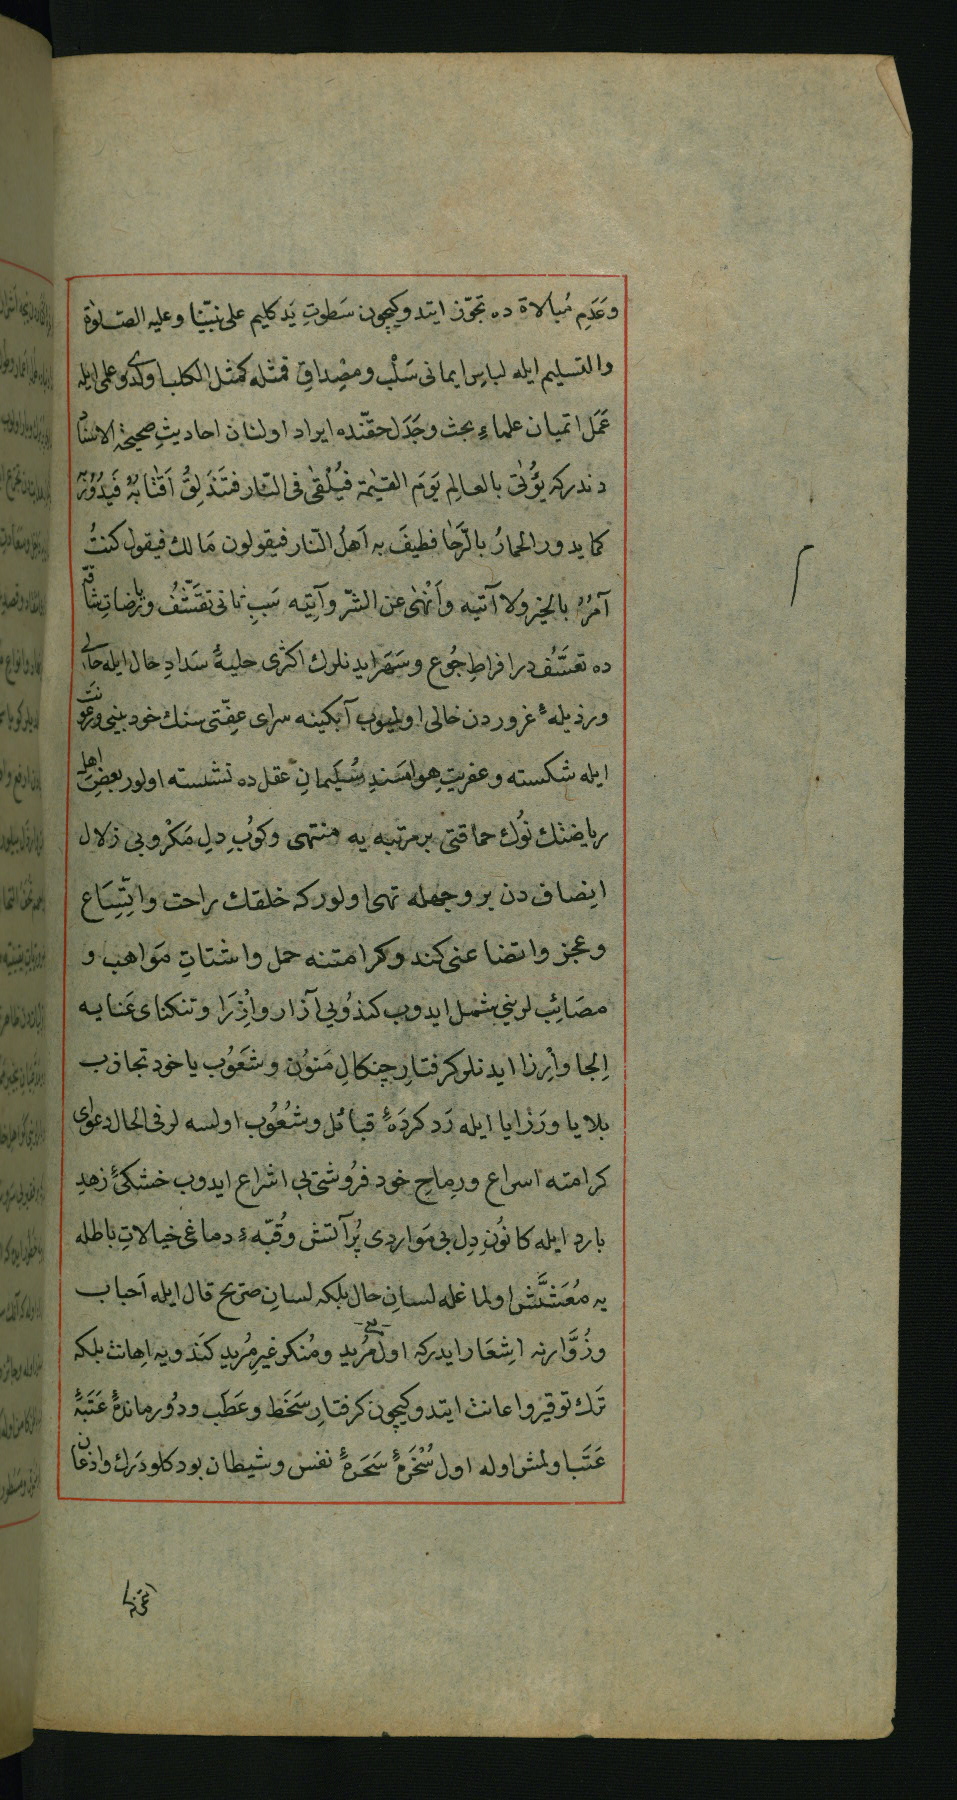 وَعَدَمِ مُبالاة ده تجوّز ايتدوكيچون سَطوتِ يَدِ كليم على نبيّنا وعليه الصّلوة
والتسليم ايله لباسِ ايمانى سَلْب ومِصْداقِ فمثله كمثل الكلب اولدى وعلمى ايله
عَمَل اتميان علماءِ بحث وجَدَل حقّنده ايراد اولنان احاديثِ صحيحۀ الاسناد
دندركه يُؤتٰى بالعالِم يَومَ القيٰمة فيُلقٰى فى النّار فتَنْدَلِقُ اَقْتابُهُ فَيَدُورُ بِهَا
كما يدور الحمارُ بالرَّحٰا فطيفَ به اَهلُ النّار فيقولون مَا لك فيقول كنتُ
آمُرُ بالخير ولا آتيه وأنْهٰى عن الشرّ وآتِيه سَببِ ثانى تقَشُّف ورياضاتِ شاقّه
ده تعسُّفدر افراطِ جُوع وسَهَر ايدنلرك اكثرى حليۀ سَدادِ حال ايله حالى
ورذيلۀ غروردن خالى اولميوب آبكينه سراى عِفّتى سنك خود بينى ورعونت
ايله شكسته وعفريتِ هوا مَسندِ سُليمانِ عقلده نشسته اولور بعضِ اهلِ
رياضتك نُوك حماقتى بر مرتبه يه منتهى وكوبِ دلِ مَكْروبى زلال
انصافدن بر وجهله تهى اولوركه خلقك راحت واتّساع
وعجز واتضاعنى كندو كرامتنه حمل واشتاتِ مَواهب و
مصَائِب لرينى شمل ايدوب كندُويى آزار واِزْرَا وتنكناى عَنايه
اِلجا واِرزا ايدنلر كرفتارِ چنكالِ مَنُون وشَعُوب ياخود تجاذب
بلايا ورَزايا ايله رَد كردَۀ قبائل وشُعُوب اولسه لر فى الحال دعواى
كرامته اسراع ورِماحِ خود فرُوشتى اشراع ايدوب خشكئ زهدِ
بارد ايله كانُونِ دِل بى مَواردى پُر آتش وقُبّۀ دماغى خيالاتِ باطله
يه مُعَشَّش اولماغله لسانِ حال بلكه لسانِ صَريح قال ايله اَحباب
وزُوَّارنه اِشعَار ايدركه اول مُريد ومُنكر غيرِ مُريد كَندويه اِهانت بلكه
تَرك توقير واعانت ايتدوكيچون كرفتارِ سَخَط وعَطَب ودُور ماندۀ عَتَبۀ
عَتَبا ولمش اوله اول سُخْرَۀ سَحَرۀ نفس وشيطان بود كلو دَرك واذعان